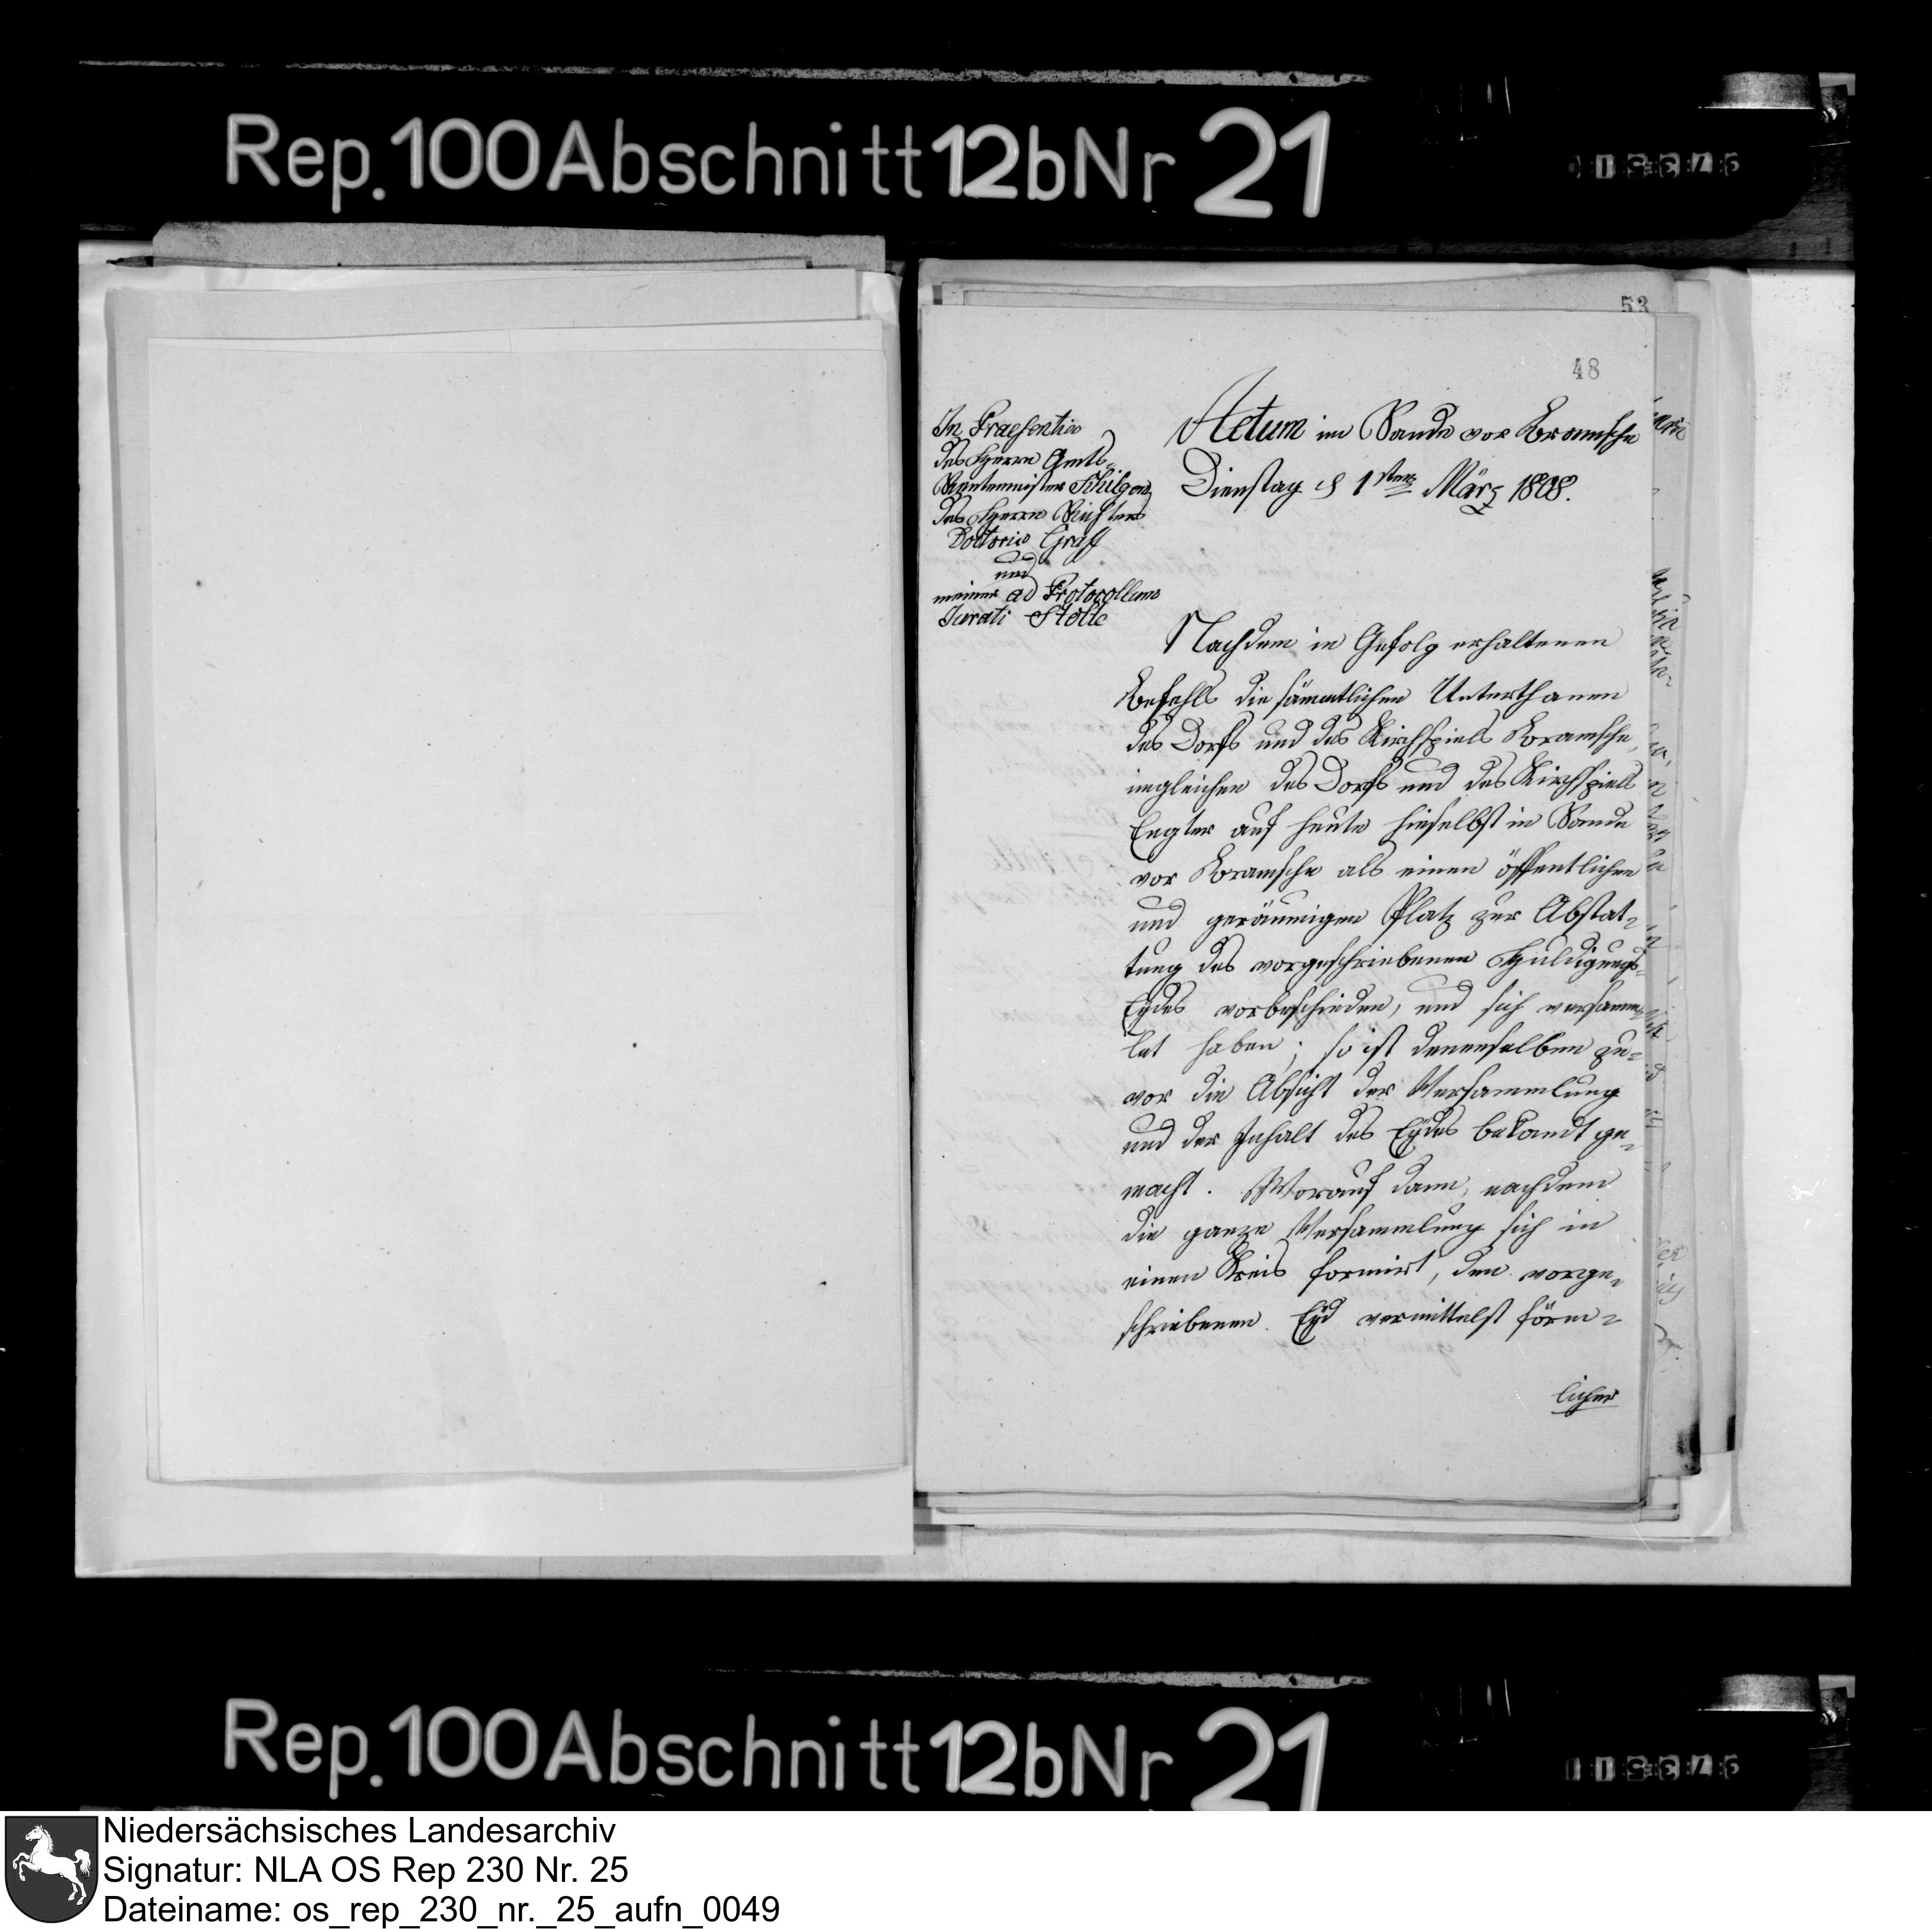 Rep. 100 Abschnitt 12b Nr 21
53
48
In Praesentia
des Herrn Amts-
Rentemeister Schilgen
des Herrn Richters
Doctoris Gräff
und
meiner ad Protocollum
Jurati Stolte
Actum im Sande vor Bramsche
Dienstag d 1sten März 1808.
Nachdem in Gefolg erhaltenen
Befehls die sämmtlichen Unterthanen
des Dorfs und des Kirchspiels Bramsche,
ingleichen des Dorfs und des Kirchspiels
Engter auf heute hieselbst im Sande
vor Bramsche als einen öffentlichen
und geräumigen Platz zur Abstat-
tung des vorgeschriebenen Huldigungs-
Eydes vorbeschieden, und sich versamm-
let haben; so ist denenselben zu-
vor die Absicht der Versammlung
und der Inhalt des Eydes bekandt ge-
macht. Worauf dann, nachdem
die ganze Versammlung sich in
einen Kreis formirt, den vorge-
schriebenen Eyd vermittelst förm-
licher
Rep. 100 Abschnitt 12b Nr 21
Niedersächsisches Landesarchiv
Signatur: NLA OS Rep 230 Nr. 25
Dateiname: os_rep_230_nr._25_aufn_0049